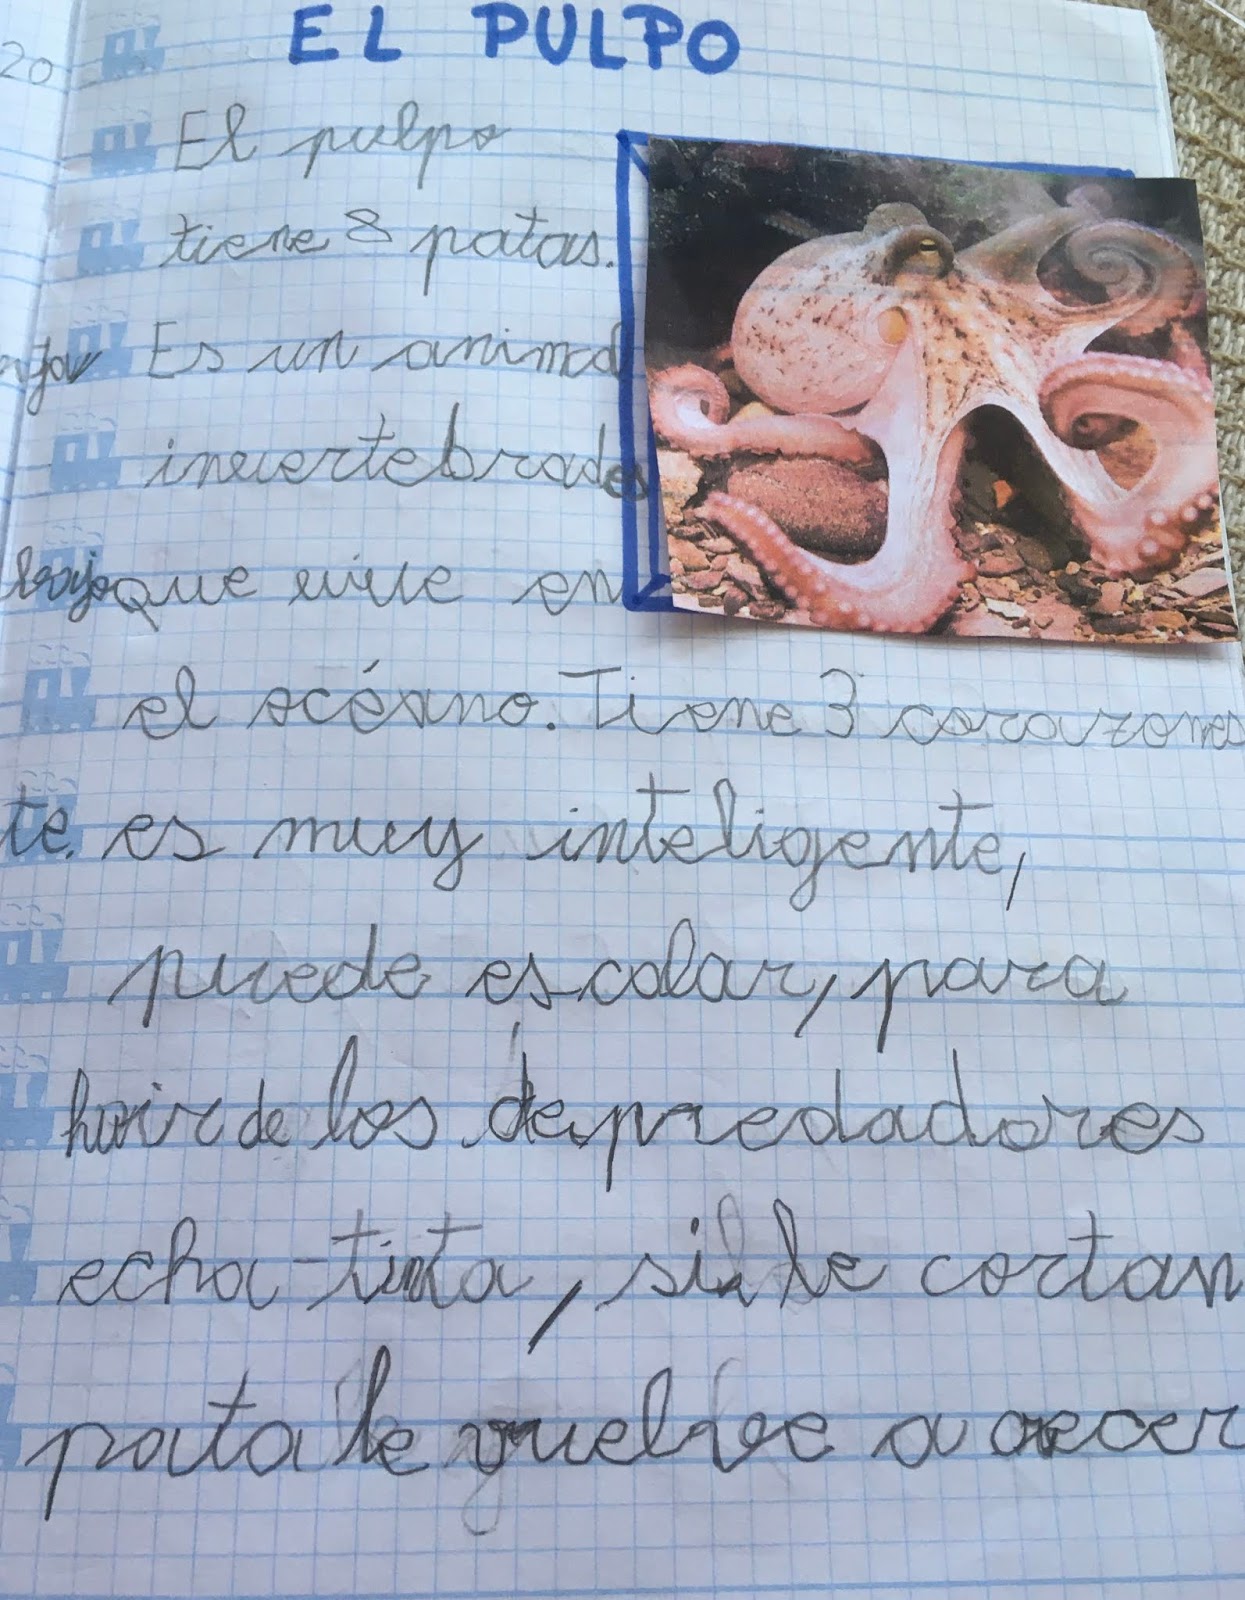 EL PULPO
20
El pulpo
tiene 8 patas.
Es un animal
invertebrados
que vive en
el océano. Tiene 3 corazones
te. es muy inteligente,
puede escalar, para
huir de los depredadores
echa tinta, si le cortan
pata le vuelve a crecer